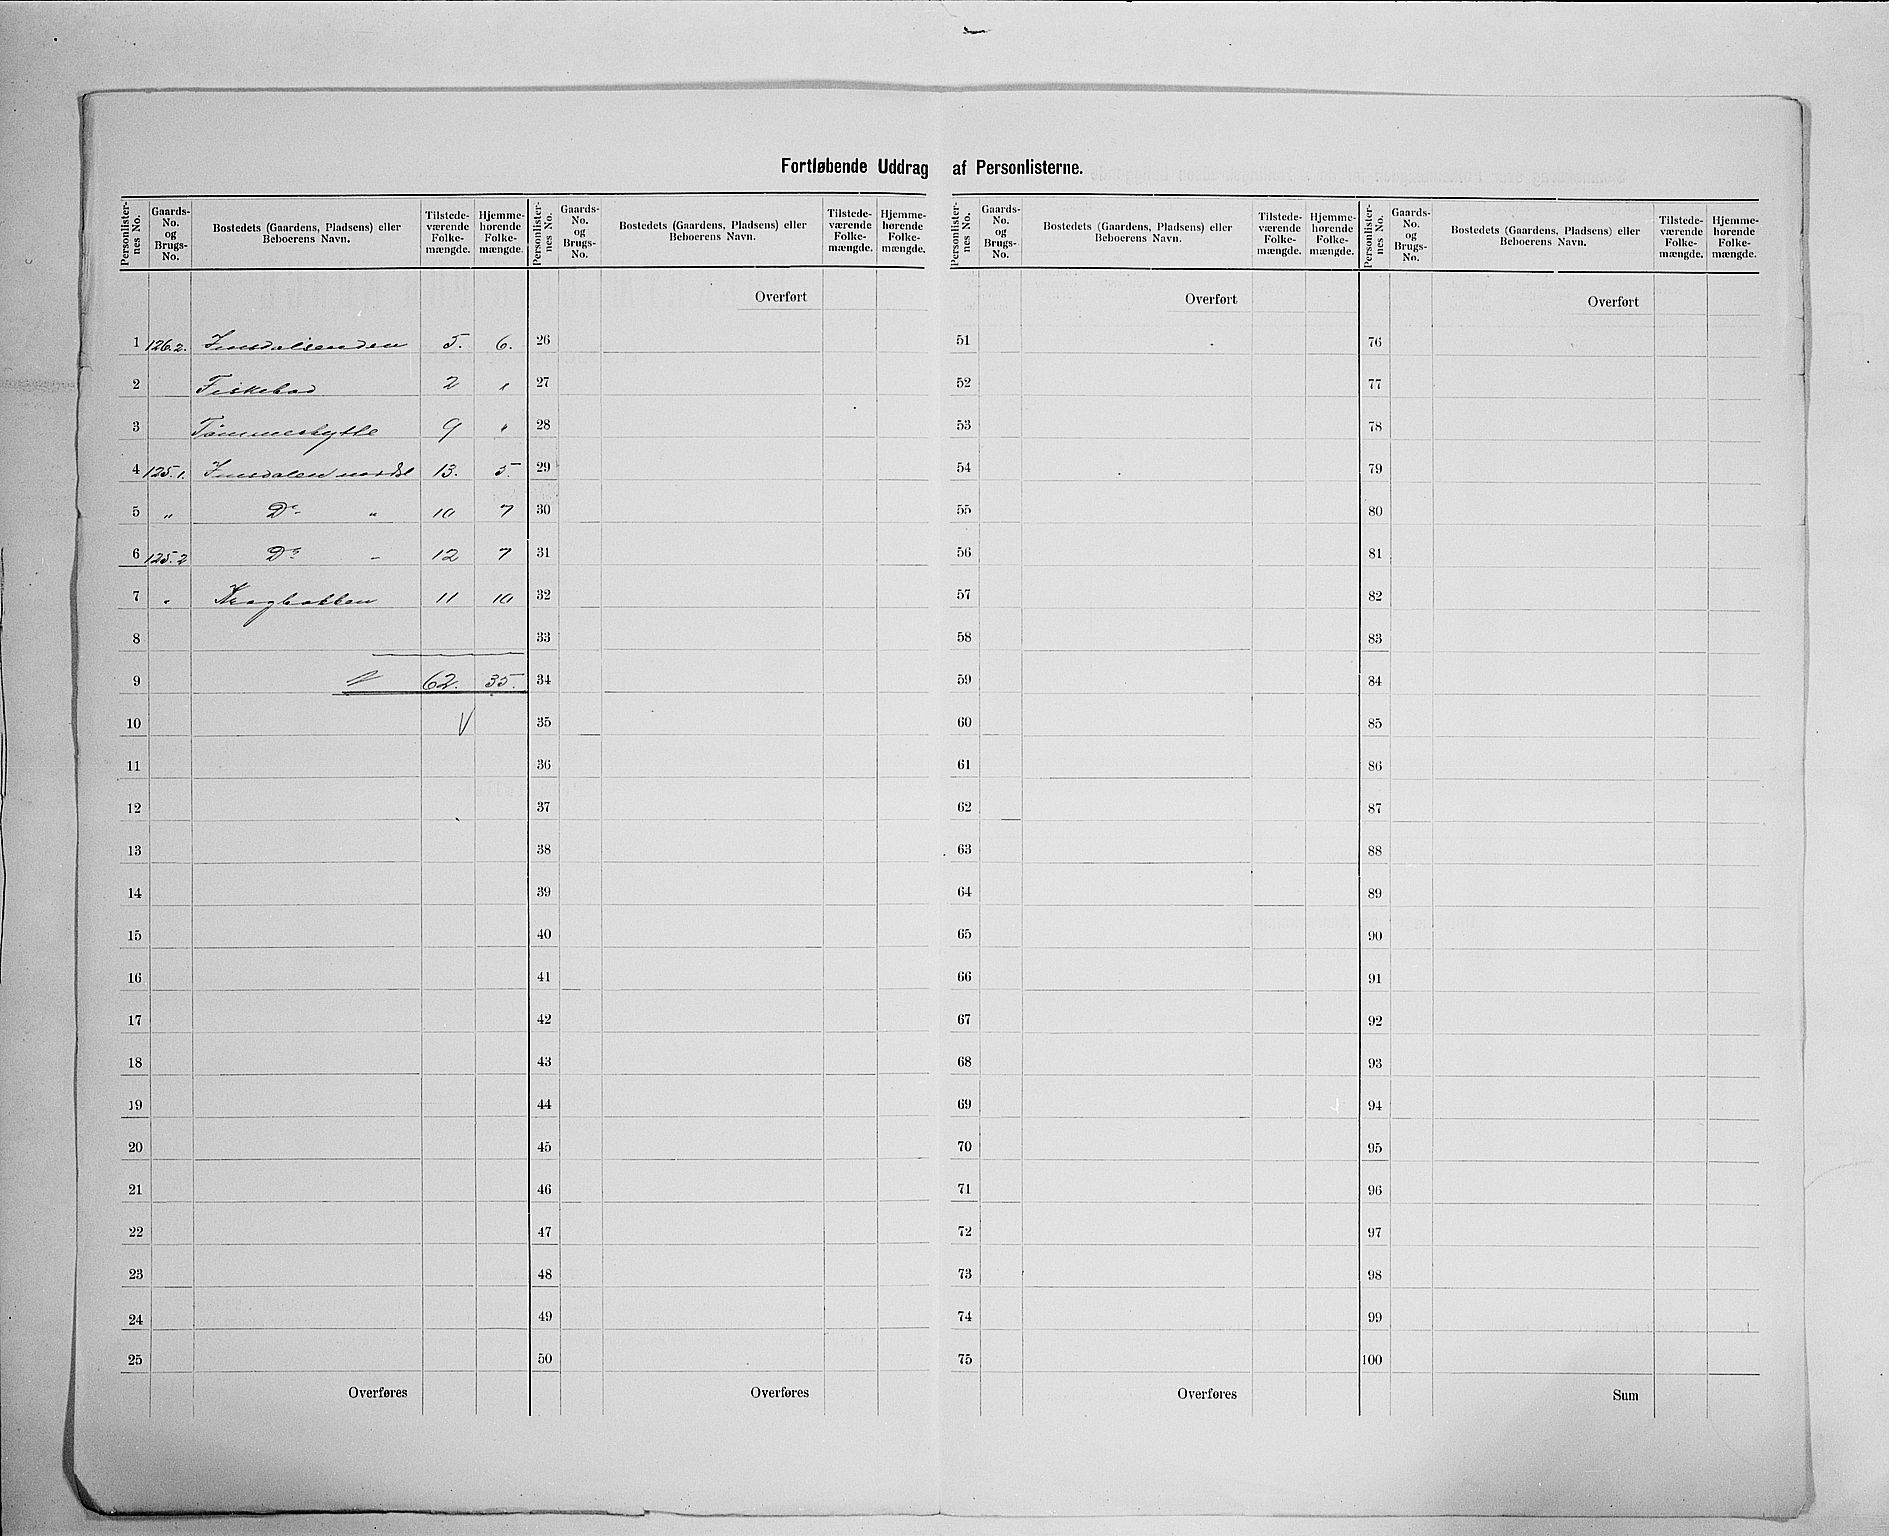 Fortløbende Uddrag af Personlisterne.
Personlister-nes No. | Gaards-No. og Brugs-No. | Bostedets (Gaardens, Pladsens) eller Beboerens Navn. | Tilstede-værende Folke-mængde. | Hjemme-hørende Folke-mængde.
1 126.2. Imsdalsenden 5. 6.
2 Fiskebod 2 "
3 Tømmerhytte 9 "
4 125.1. Imsdalen nordst 13. 5.
5 " Do " 10 7
6 125.2 Do - 12 7
7 " Kragbakken 11 10
8
9 62. 35.
10
11
12
13
14
15
16
17
18
19
20
21
22
23
24
25
Overføres
Personlister-nes No. | Gaards-No. og Brugs-No. | Bostedets (Gaardens, Pladsens) eller Beboerens Navn. | Tilstede-værende Folke-mængde. | Hjemme-hørende Folke-mængde.
Overført
26
27
28
29
30
31
32
33
34
35
36
37
38
39
40
41
42
43
44
45
46
47
48
49
50
Overføres
Personlister-nes No. | Gaards-No. og Brugs-No. | Bostedets (Gaardens, Pladsens) eller Beboerens Navn. | Tilstede-værende Folke-mængde. | Hjemme-hørende Folke-mængde.
Overført
51
52
53
54
55
56
57
58
59
60
61
62
63
64
65
66
67
68
69
70
71
72
73
74
75
Overføres
Personlister-nes No. | Gaards-No. og Brugs-No. | Bostedets (Gaardens, Pladsens) eller Beboerens Navn. | Tilstede-værende Folke-mængde. | Hjemme-hørende Folke-mængde.
Overført
76
77
78
79
80
81
82
83
84
85
86
87
88
89
90
91
92
93
94
95
96
97
98
99
100
Sum